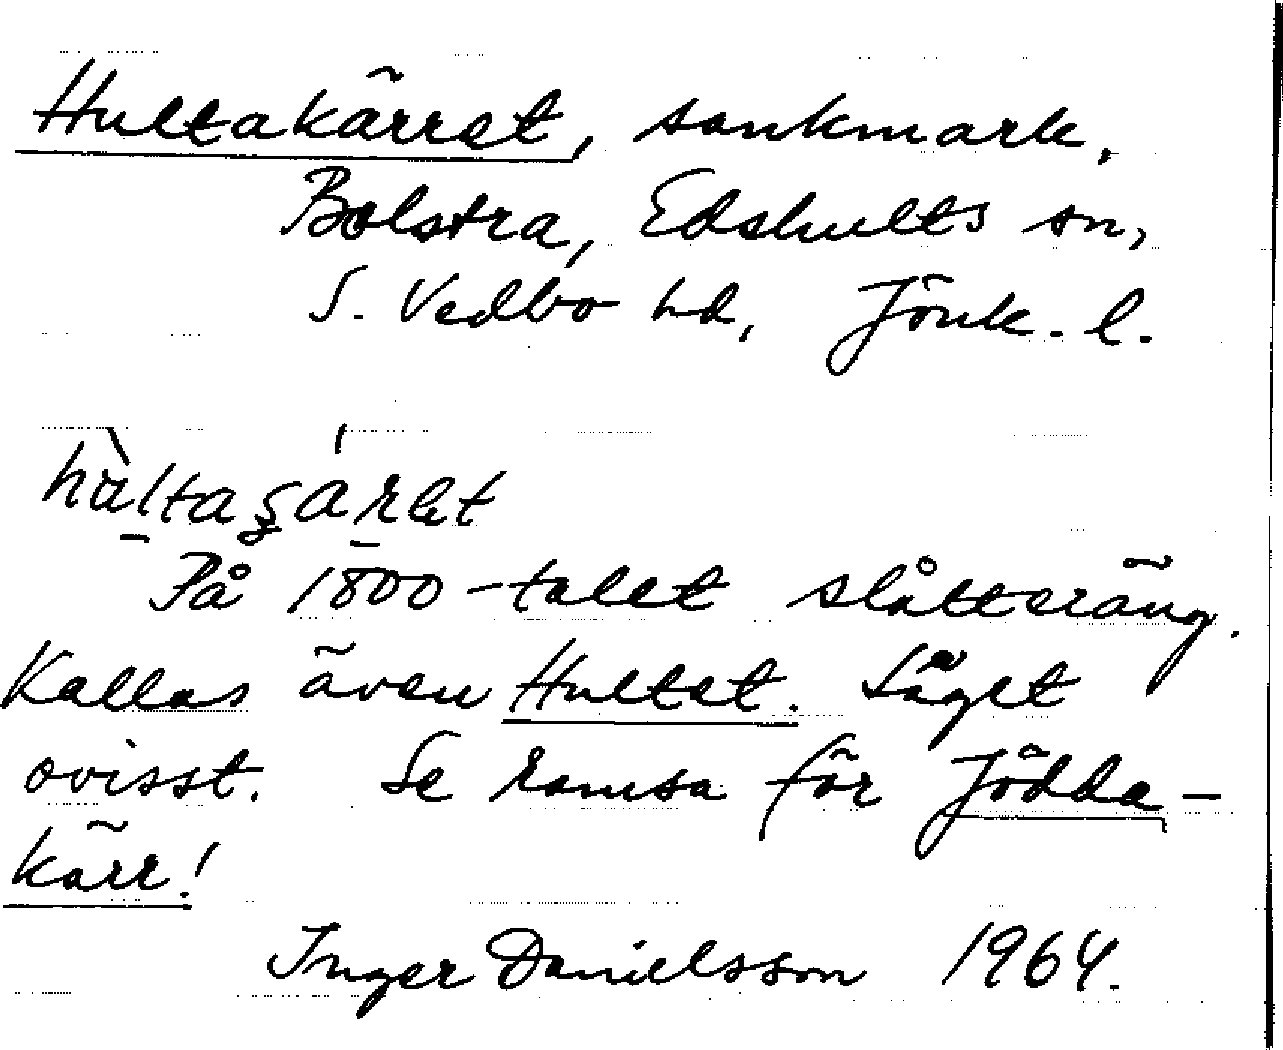 Hultakärret, sankmark,
Bolstra, Edshults sn,
S. Vedbo hd, Jönk. l.
På 1800-talet slåtteräng.
Kallas även Hultet. Läget
ovisst. Se ramsa för Jödda-
kärr!
Inger Danielsson 1964.